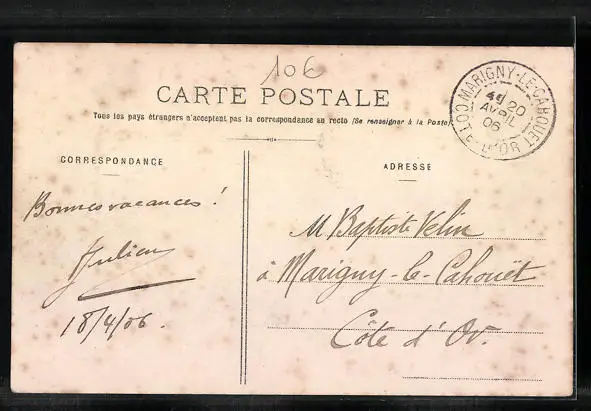 106
CARTE POSTALE
Tous les pays étrangers n'acceptent pas la correspondance au recto (Se renseigner à la Poste)
MARIGNY-LE-CAHOUET
20
AVRIL
06
CÔTE-D'OR
CORRESPONDANCE
ADRESSE
Bonnes vacances !
Julien
18/4/06.
M Baptiste Velin
à Marigny-le-Cahouët
Côte d'Or.